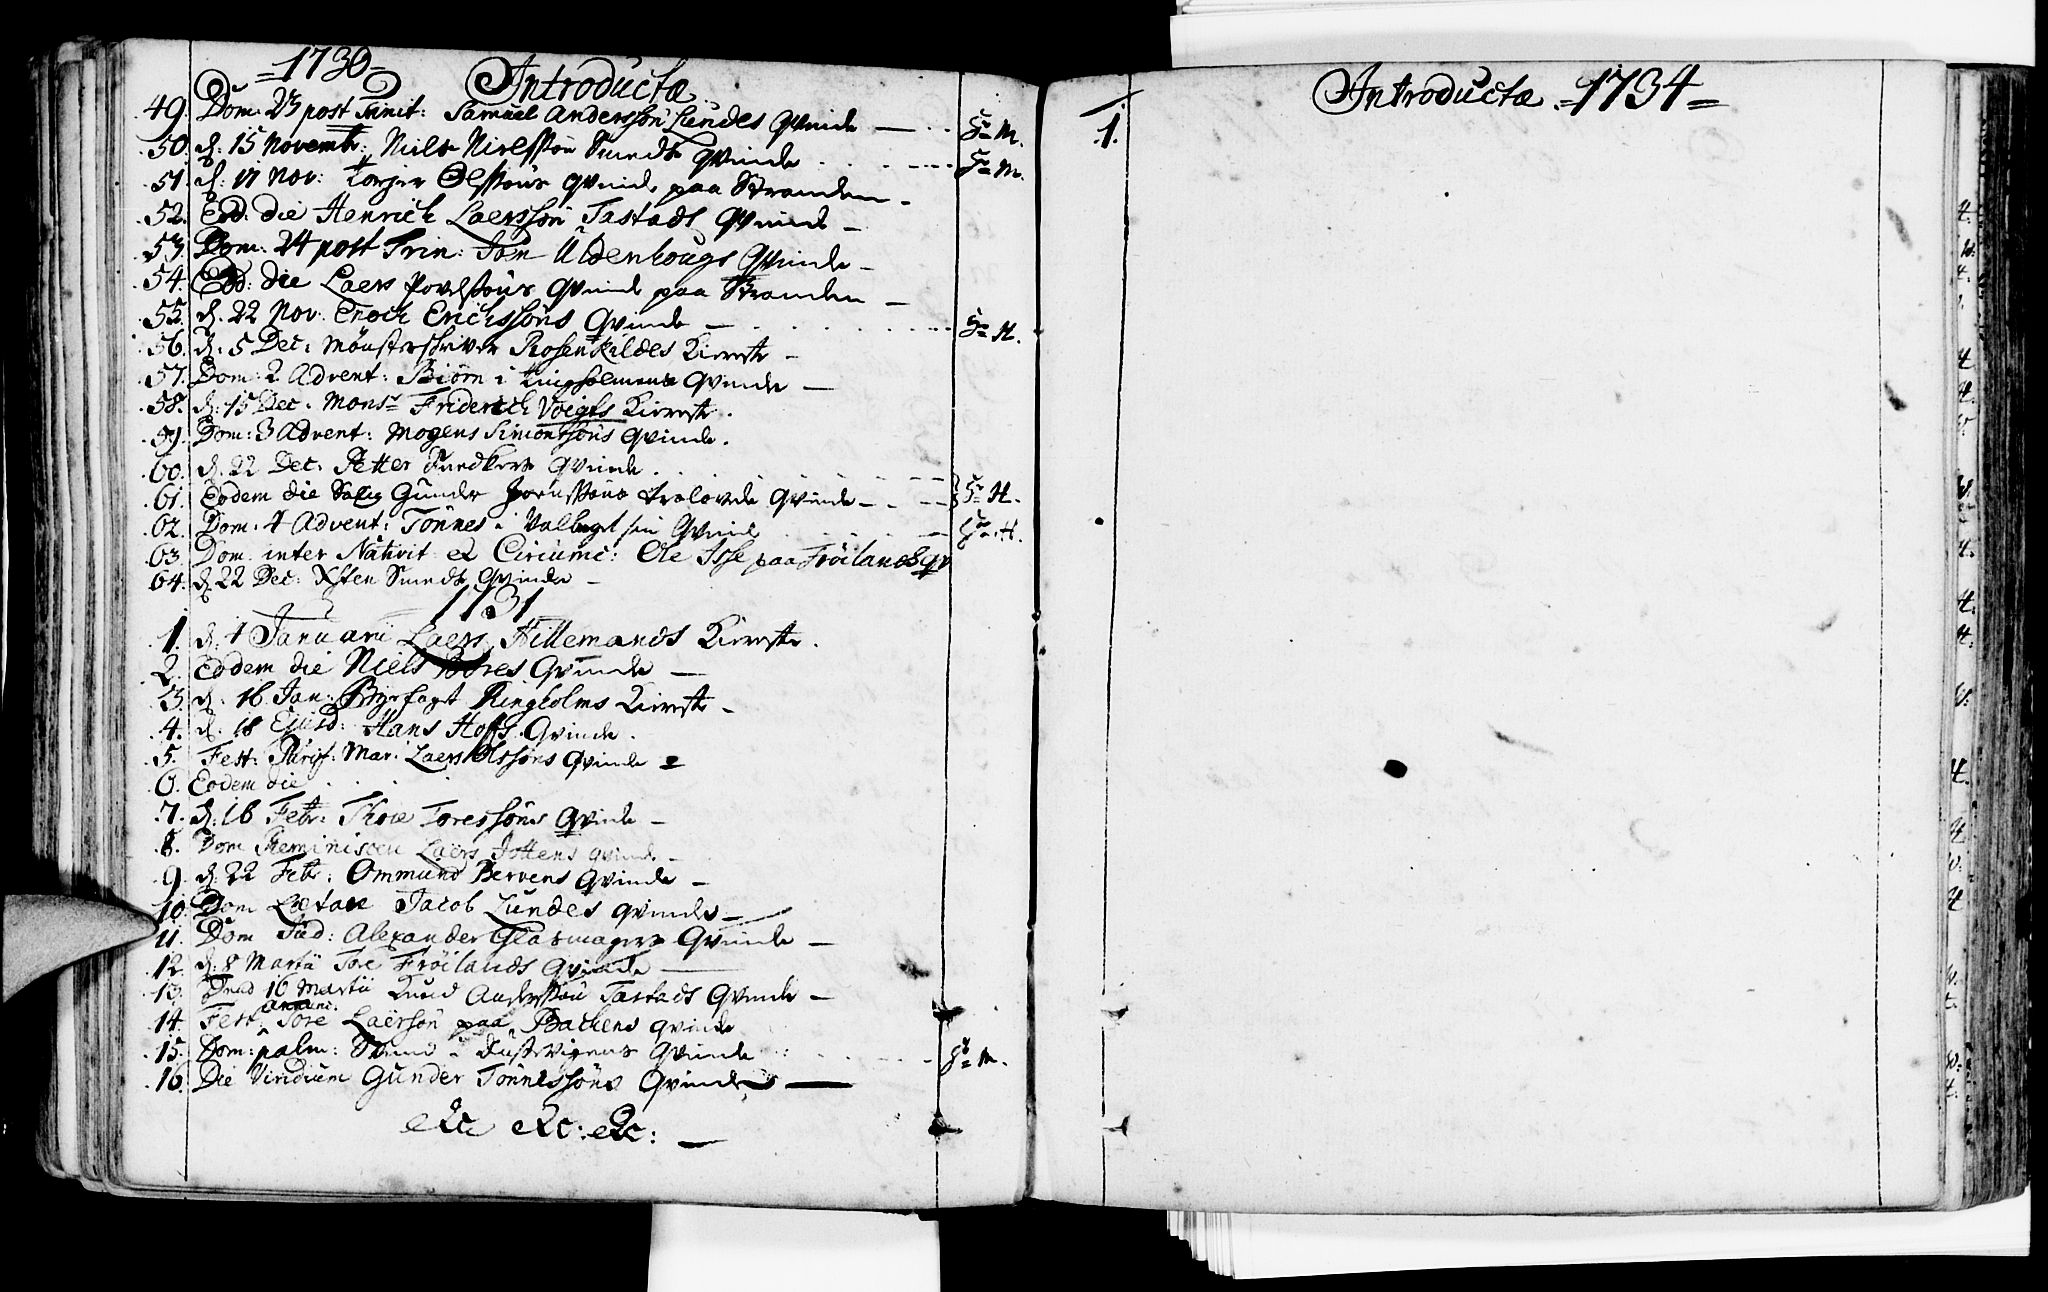 =1730=
Introductæ
49. Dom: 23 post Trinit: Samuel Anderssøn Lundes Qvinde — Hr M.
50. d: 15 Novembr: Niels Nielssøn Smeds Qvinde Hr M.
51. d: 17 Nov: Torger Olssøns Qvinde paa Stranden –
52. Eod: die Henrich Laerssøn Tastads Qvinde –
53. Dom: 24 post Trin: Jon Uldenhougs Qvinde –
54. Eod: die Laers Povelssøns Qvinde paa Stranden –
55. d. 22 Nov. Enoch Erichssøns Qvinde – Hr H.
56. d: 5 Dec: Mønsterskriver Rosenkildes Kiereste –
57. Dom: 2 Advent: Biørn i Qvinde –
58. d: 15 Dec. Monsr Friderich Voigts Kiereste.
59. Dom: 3 Advent: Mogens Simonssøns Qvinde.
60. d. 22 Dec: Petter Qvinde.
61. Eodem die Salig Gunder trolovede Qvinde – Hr H.
62. Dom: 4 Advent: Tønnes i sin Qvinde Hr H.
63. Dom inter Nativit et Circumc: Ole Isse paa Frøilands qv
64. d 22 Dec: Xsten Smeds Qvinde –
1731
1. d. 4 Januarii Laers Hillemands Kiereste.
2. Eodem die Niels Bores Qvinde –
3. d: 16 Jan: Byefogt Ringholms Kiereste –
4. d. 18 Ejusd: Hans Hoffs Qvinde.
5. Fest: Purif: Mar: Laers Olssøns Qvinde
6. Eodem die
7. d: 16 Febr: Thore Toressøns Qvinde –
8. Dom Reminiscere Laers Jottens qvinde –
9. d: 22 Febr: Ommund Bervens Qvinde –
10. Dom Lætare Jacob Lundes qvinde –
11. Dom Jud: Alexander Glasmagers Qvinde –
12. d: 8 Martii Tore Frøilands Qvinde —
13. 16 Martii Knud Anderssøn Tastads Qvinde –
14. Fest Annunc: Tore Laerssøn paa Backens qvinde
15. Dom: palm: i Dusevigens Qvinde Hr M.
16. Die Viridium Gunder Tønnessøns Qvinde —
etc etc: etc: —
Introductæ =1734=
1.